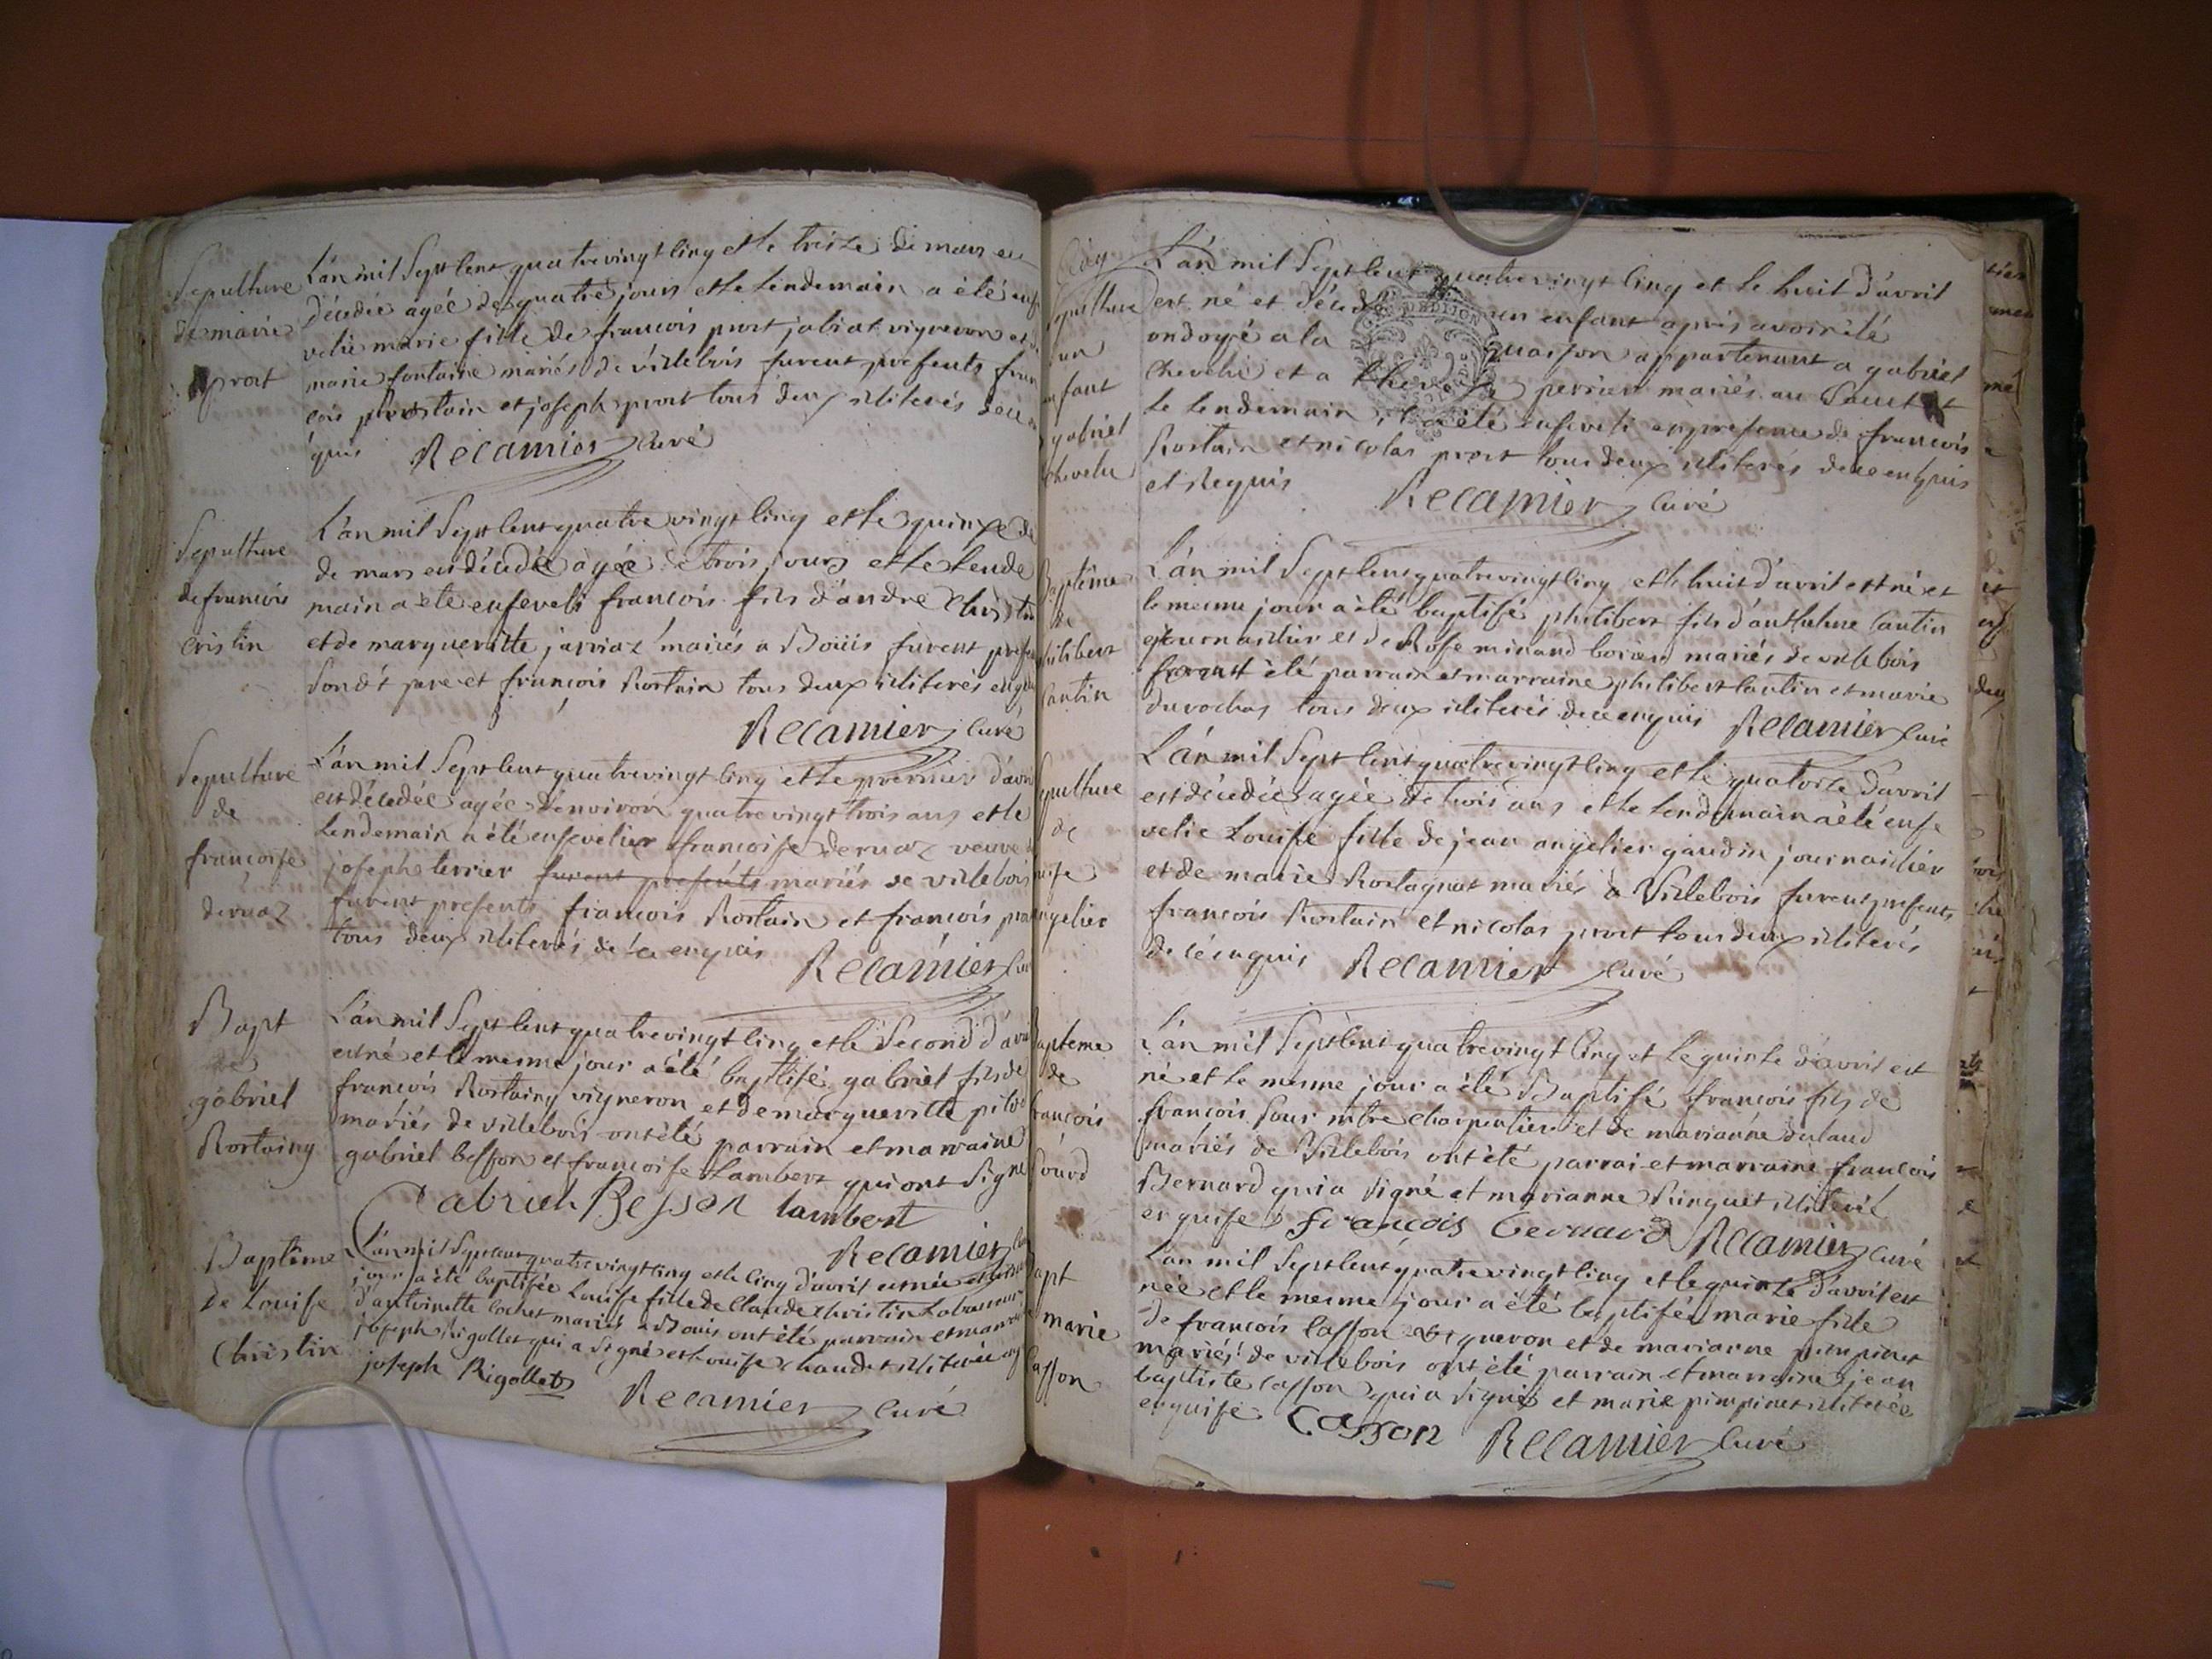 Sepulture
de marie
prost
L'an mil Sept cent quatre vingt cinq et le treize de mars est
décédée agée de quatre jours et le lendemain a été ense
velie marie fille de francois prost jabiat vigneron et de
marie fontaine mariés de villebois furent presents fran
cois Rostain et joseph prost tous deux illiterés de ce en
quis Recamier curé
Sepulture
de francois
cristin
L'an mil Sept cent quatre vingt cinq et le quinze de
de mars est décédé agée de trois jours et le lende
main a été enseveli francois fils d'andré Christin
et de margueritte jarriaz mariés a Bouis furent presen
Sondt pere et francois Rostain tous deux illiterés enqui
Recamier curé
Sepulture
de
francoise
dervaz
L'an mil Sept cent quatre vingt cinq et le premier d'avri
est décédée agée d'environ quatre vingt trois ans et le
Lendemain a été ensevelie francoise dervaz veuve
joseph terrier furent presents mariés de villebois
furent presents francois Rostain et francois pro
tous deux illiterés de ce enquis
Recamier cu
Bapt
de
gabriel
Rostaing
L'an mil Sept cent quatre vingt cinq et le Second d'avri
est né et le mesme jour a été baptisé gabriel fils de
francois Rostaing vigneron et de margueritte
mariés de villebois ont été parrain et marraine
gabriel besson et francoise Lambert qui ont Signé
Gabrieh Besson lambert
Recamier
Baptême
de Louise
Christin
L'an mil Sept cent quatre vingt cinq et le cinq d'avril est née et le
jour a été baptisée Louise fille de Claude Christin Laboureur
d'antoinette cochet mariés a Bouis ont été parrain et marrai
joseph Rigollet qui a Signé et Louise chaudet illiterée en
joseph Rigollet
Recamier curé
Sepulture
d'un
enfant
gabriel
Chevelu
L'an mil Sept cent quatre vingt cinq et le huit d'avril
est né et décédé un enfant apris avoir été
ondoyé a la maison appartenant a gabriel
Chevelu et a perrier mariés au Saut et
Le Lendemain il a été enseveli en presence de francois
Rostain et nicolas prost tous deux illiterés de ce enquis
et Requis Recamier curé
Baptême
de
philibert
Cantin
L'an mil Sept cent quatre vingt cinq et le huit d'avril est né et
le mesme jour a été baptisé philibert fils d'anthelme Cantin
journaillier et de Rose minand mariés de villebois
furent été parrain et marraine philibert Cantin et marie
durochas tous deux illiterés de ce enquis Recamier curé
Sepulture
de
Louise
angelier
L'an mil Sept cent quatre vingt cinq et le quatorze d'avril
est décédée agée de trois ans et le Lendemain a été ense
velie Louise fille de jean angelier gaudin journaillier
et de marie Rostagnat mariés a Villebois furent presents
francois Rostain et nicolas prost tous deux illiterés
de ce enquis Recamier curé
Bapteme
de
francois
Sourd
L'an mil Sept cent quatre vingt cinq et le quinze d'avril est
né et le mesme jour a été Baptisé francois fils de
francois Sour mtre charpentier et de marianne dulaud
mariés de Villebois ont été parrai et marraine francois
Bernard qui a Signé et marianne Ringuet illiterée
enquise francois Bernard Recamier curé
Bapt
marie
Casson
L'an mil Sept cent quatre vingt cinq et le quinze d'avril est
née et le mesme jour a été baptisée marie fille
de francois Casson vigneron et de marianne pimpinet
mariés de villebois ont été parrain et marraine jean
baptiste casson qui a Signés et marie pimpinet illiterée
enquise Casson Recamier Curé